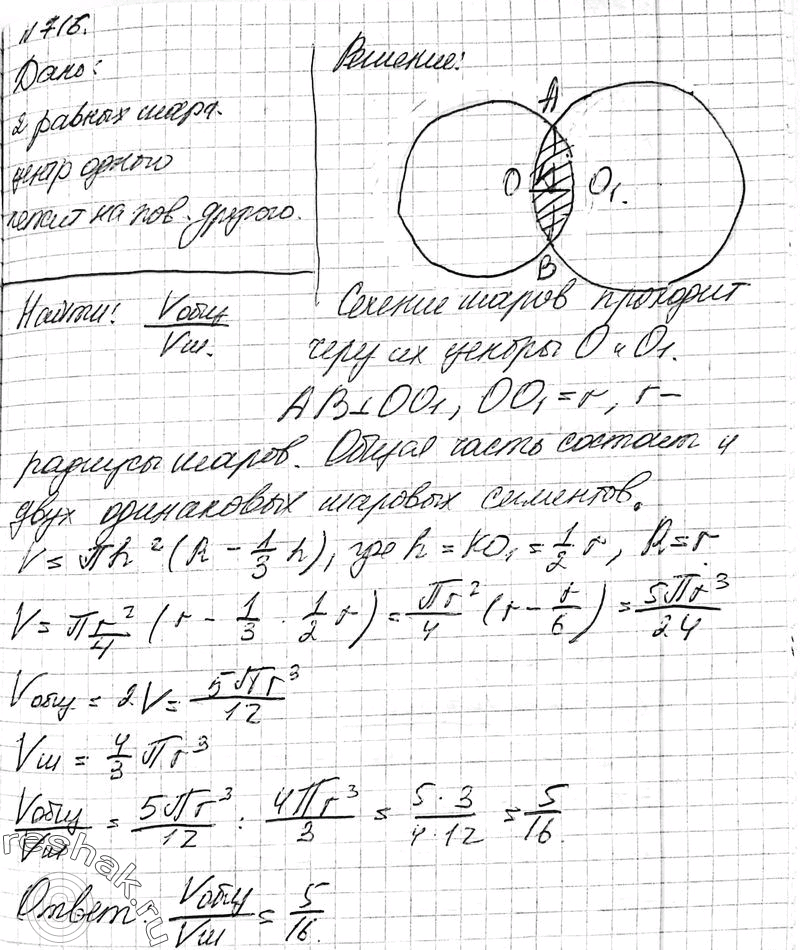 №716.
Дано:
2 равных шара.
центр одного
лежит на пов. другого.
Решение:
A
O K O₁.
B
Найти: Vобщ/Vш.
Сечение шаров проходит
через их центры O и O₁.
AB⊥OO₁, OO₁ = r, r –
радиусы шаров. Общая часть состоит и
двух одинаковых шаровых сегментов.
V = πh²(R - 1/3 h), где h = KO₁ = 1/2 r, R = r.
V = π r²/4 (r - 1/3 · 1/2 r) = πr²/4 (r - r/6) = 5πr³/24
Vобщ = 2V = 5πr³/12
Vш = 4/3 πr³
Vобщ/Vш = 5πr³/12 : 4πr³/3 = 5·3/4·12 = 5/16.
Ответ: Vобщ/Vш = 5/16.
reshak.ru